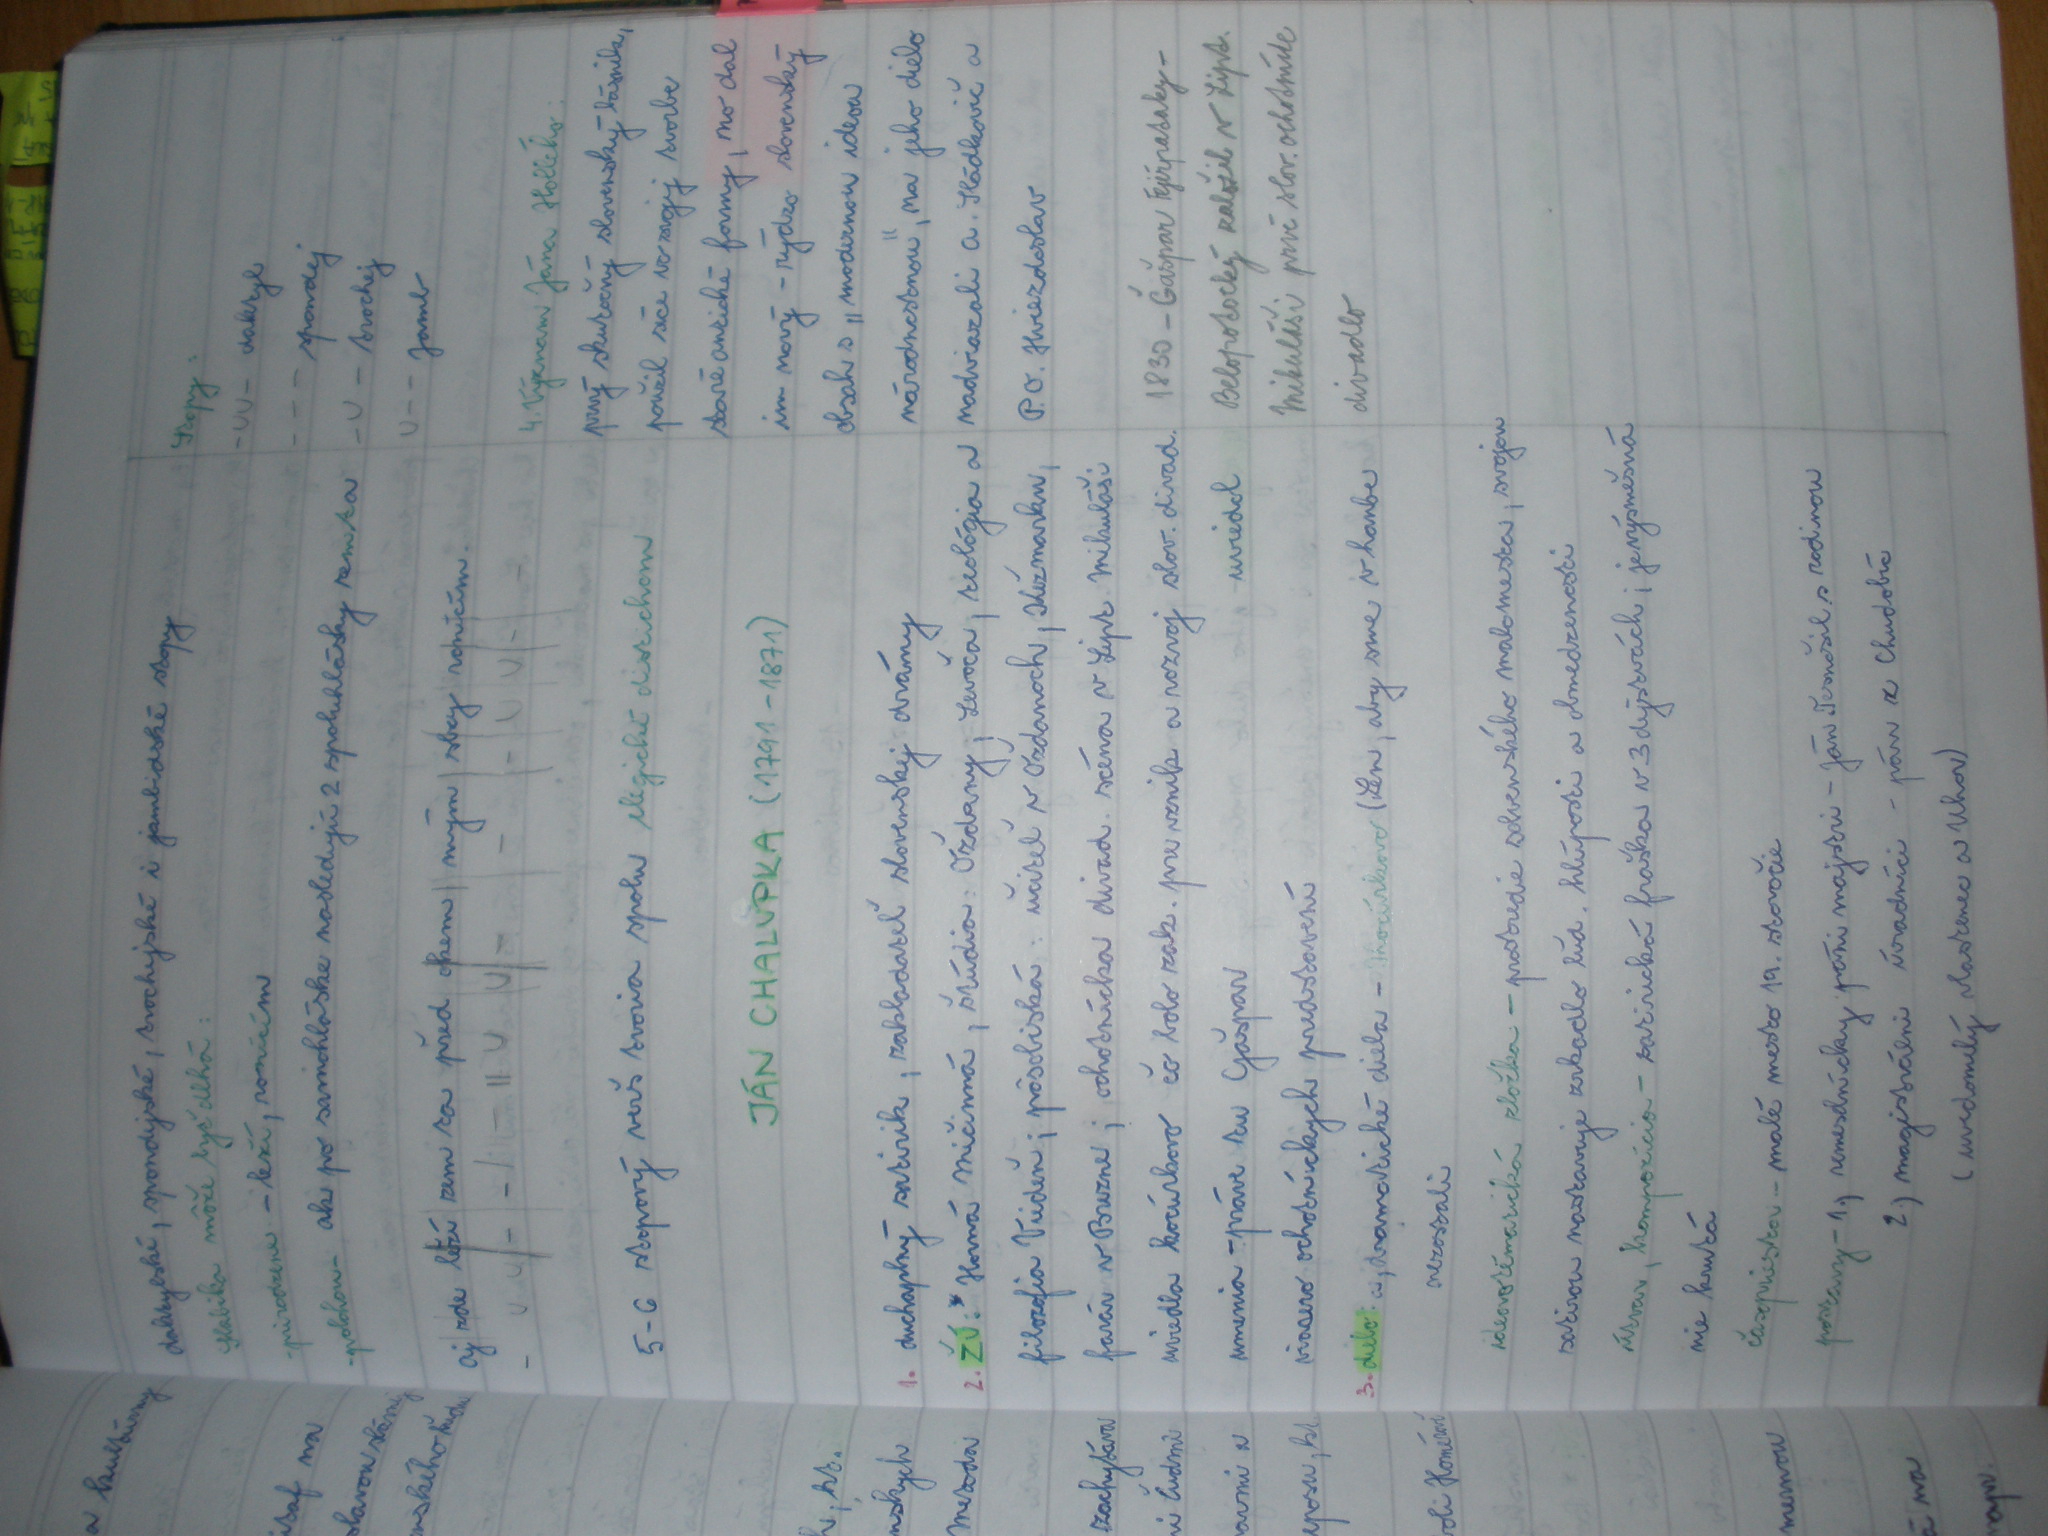 daktylské, spondejské, trochejské i jambické stopy
slabika môže byť dlhá:
-prirodzene - leží, rončím
-polohou- ak po samohláske nasledujú 2 spoluhlásky
aj zde leží zem ta před okem mým slzy ronícím.
- U U - - - || - U U - - U U - U U - -
5-6 stopový verš tvoria spolu elegické distichon
JÁN CHALUPKA (1791-1871)
1. duchaplný satirik, zakladateľ slovenskej drámy
2. ŽŠ: Horná Mičiná, štúdia: Ožďany, Levoča, teológia a
filozofia Viedeň; pôsobiská: učiteľ v Ožďanoch, Kežmarku,
farár v Brezne; ochotnícka divad. scéna v Lipt. Mikuláši
uviedla Kocúrkovo čo bolo zák. pre vznik a rozvoj slov. divad.
umenia - práve tu Gašpar - uviedol
viacero ochotníckych predstavení
3. dielo: a, dramatické diela - Kocúrkovo (Len, aby sme v hanbe
nezostali
ideovotématická zložka - prostredie slovenského malomesta, svojou
satirou nastavuje zrkadlo ľud. hlúposti a obmedzenosti
útvar, kompozícia - satirická fraška v 3 dejstvách; je výsmešná
nie krutá
časopriestor - malé mesto 19. storočie
postavy - 1.) remeselnícky páni majstri - Ján Tesnošil s rodinou
2.) magistrálni úradníci - pán z Chudobíc
(uvedomelý starenec a Uhor)
Stopy:
-UU- daktyl
- - - spondej
-U - trochej
U- - jamb
4. Význam Jána Hollého:
prvý skutočný slovenský básnik,
použil síce vo svojej tvorbe
staré antické formy, no dal
im nový - rýdzo slovenský
obsah s "modernou ideou
národnostnou", na jeho dielo
nadviazali A. Sládkovič a
P.O. Hviezdoslav
1830 - Gašpar Fejérpataky-
Belopotocký založil v Lipt.
Mikuláši prvé slov. ochotnícke
divadlo